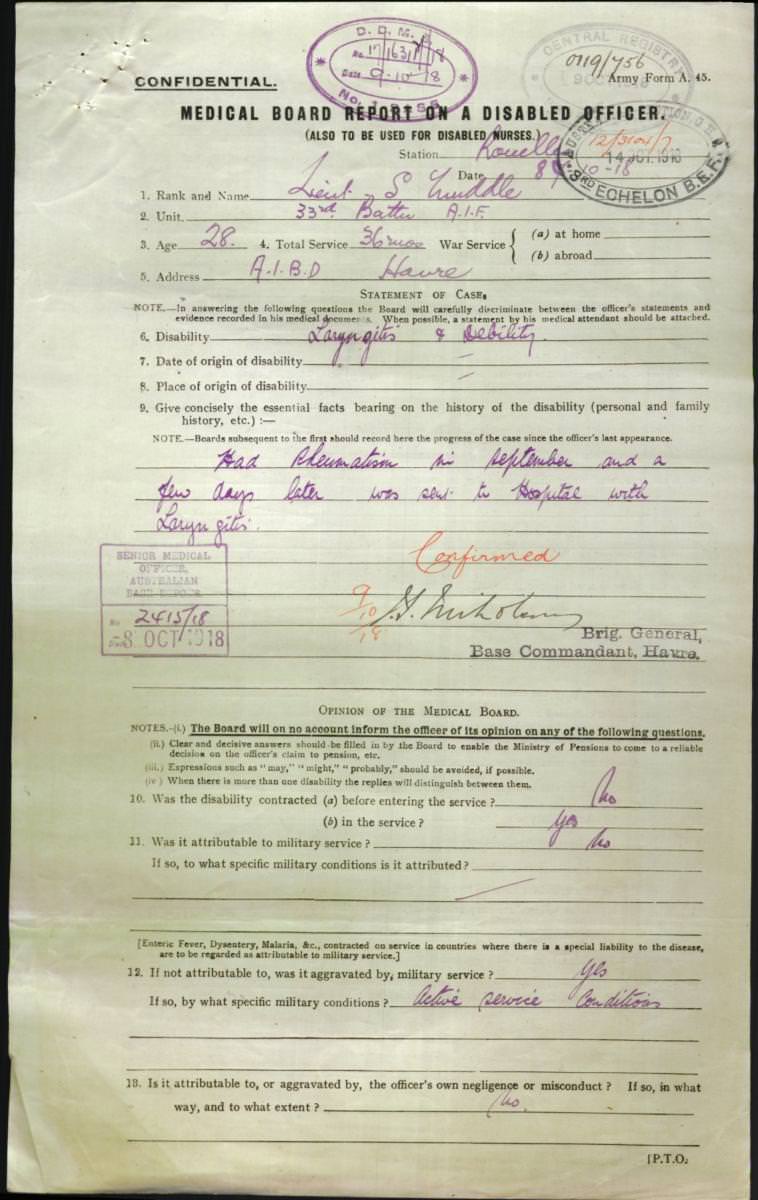 D. D. M. S.
No. 17/631/18
Date 9-10-18
No. 1 BASE
CENTRAL REGISTRY
9 OCT 1918
0119/756
CONFIDENTIAL.
Army Form A. 45.
MEDICAL BOARD REPORT ON A DISABLED OFFICER.
(ALSO TO BE USED FOR DISABLED NURSES.)
14 OCT. 1918
3RD ECHELON B.E.F.
Station Rouelles
Date 8-10-18
1. Rank and Name Lieut S
2. Unit. 33rd Battn A.I.F.
3. Age 28. 4. Total Service 36 mos War Service { (a) at home
(b) abroad
5. Address A.I.B.D Havre
STATEMENT OF CASE.
NOTE.—In answering the following questions the Board will carefully discriminate between the officer's statements and
evidence recorded in his medical documents. When possible, a statement by his medical attendant should be attached.
6. Disability Laryngitis & Debility.
7. Date of origin of disability —
8. Place of origin of disability —
9. Give concisely the essential facts bearing on the history of the disability (personal and family
history, etc.) :—
NOTE.—Boards subsequent to the first should record here the progress of the case since the officer's last appearance.
Had Rheumatism in September and a
few days later was sent to Hospital with
Laryngitis.
Confirmed
SENIOR MEDICAL
OFFICER,
AUSTRALIAN
BASE DEPOTS.
No 2415/18
Date -8 OCT 1918
9/10/18
Brig. General,
Base Commandant, Havre.
OPINION OF THE MEDICAL BOARD.
NOTES.-(i.) The Board will on no account inform the officer of its opinion on any of the following questions.
(ii.) Clear and decisive answers should be filled in by the Board to enable the Ministry of Pensions to come to a reliable
decision on the officer's claim to pension, etc.
(iii.) Expressions such as "may," "might," "probably," should be avoided, if possible.
(iv) When there is more than one disability the replies will distinguish between them.
10. Was the disability contracted (a) before entering the service? No
(b) in the service? Yes
11. Was it attributable to military service? No
If so, to what specific military conditions is it attributed?
[Enteric Fever, Dysentery, Malaria, &c., contracted on service in countries where there is a special liability to the disease,
are to be regarded as attributable to military service.]
12. If not attributable to, was it aggravated by, military service? Yes
If so, by what specific military conditions? Active service Conditions
13. Is it attributable to, or aggravated by, the officer's own negligence or misconduct? If so, in what
way, and to what extent? No.
[P.T.O.